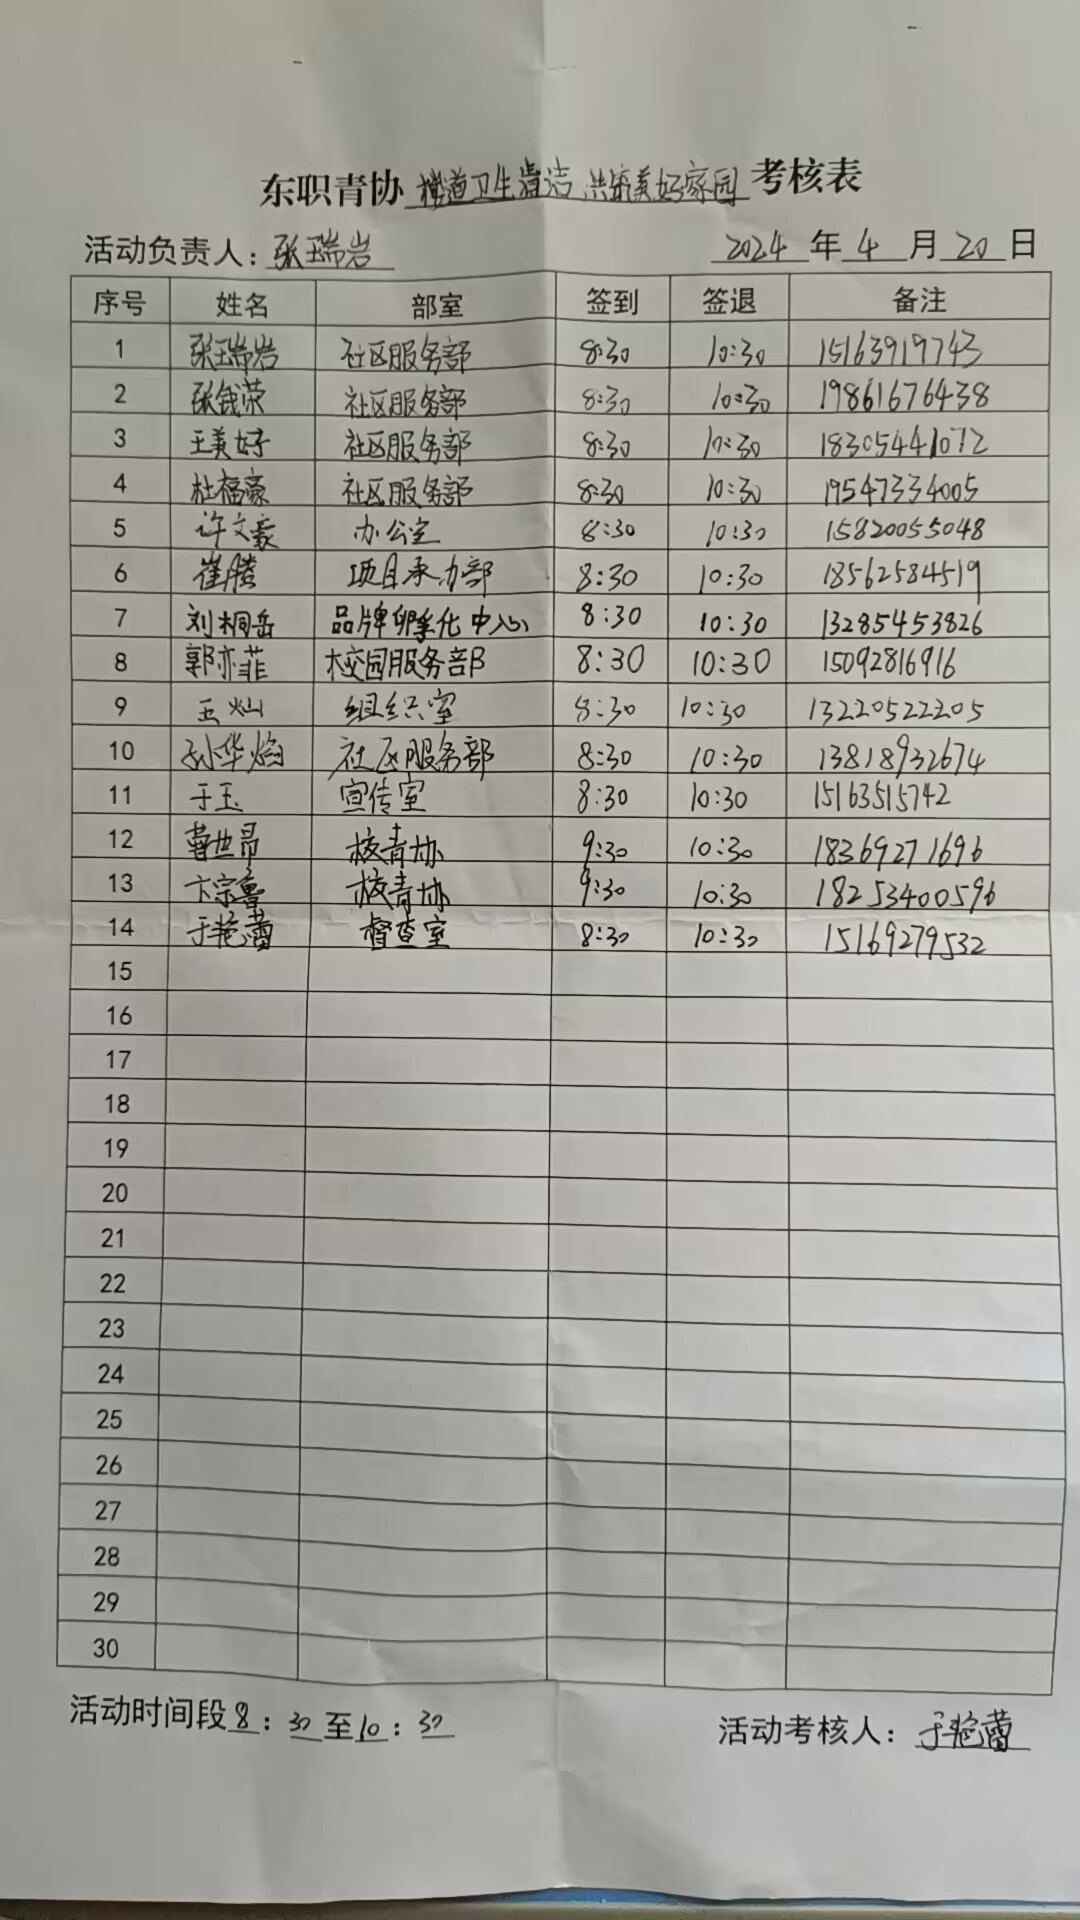 东职青协 楼道卫生清洁 共筑美好家园 考核表
活动负责人：张瑞岩 2024 年 4 月 20 日
序号 姓名 部室 签到 签退 备注
1 张瑞岩 社区服务部 8:30 10:30 15163919743
2 张钱荣 社区服务部 8:30 10:30 19861676438
3 王美好 社区服务部 8:30 10:30 18305441072
4 杜福豪 社区服务部 8:30 10:30 19547334005
5 许文豪 办公室 8:30 10:30 15820055048
6 崔腾 项目承办部 8:30 10:30 18562584519
7 刘桐岳 品牌孵化中心 8:30 10:30 13285453826
8 郭亦菲 校园服务部 8:30 10:30 15092816916
9 王灿 组织室 8:30 10:30 13220522205
10 孙华焰 社区服务部 8:30 10:30 13818932674
11 于玉 宣传室 8:30 10:30 15163515742
12 曹世昂 校青协 9:30 10:30 18369271696
13 卞宗鲁 校青协 9:30 10:30 18253400596
14 于艳蕾 督查室 8:30 10:30 15169279532
15
16
17
18
19
20
21
22
23
24
25
26
27
28
29
30
活动时间段 8：30 至 10：30 活动考核人：于艳蕾